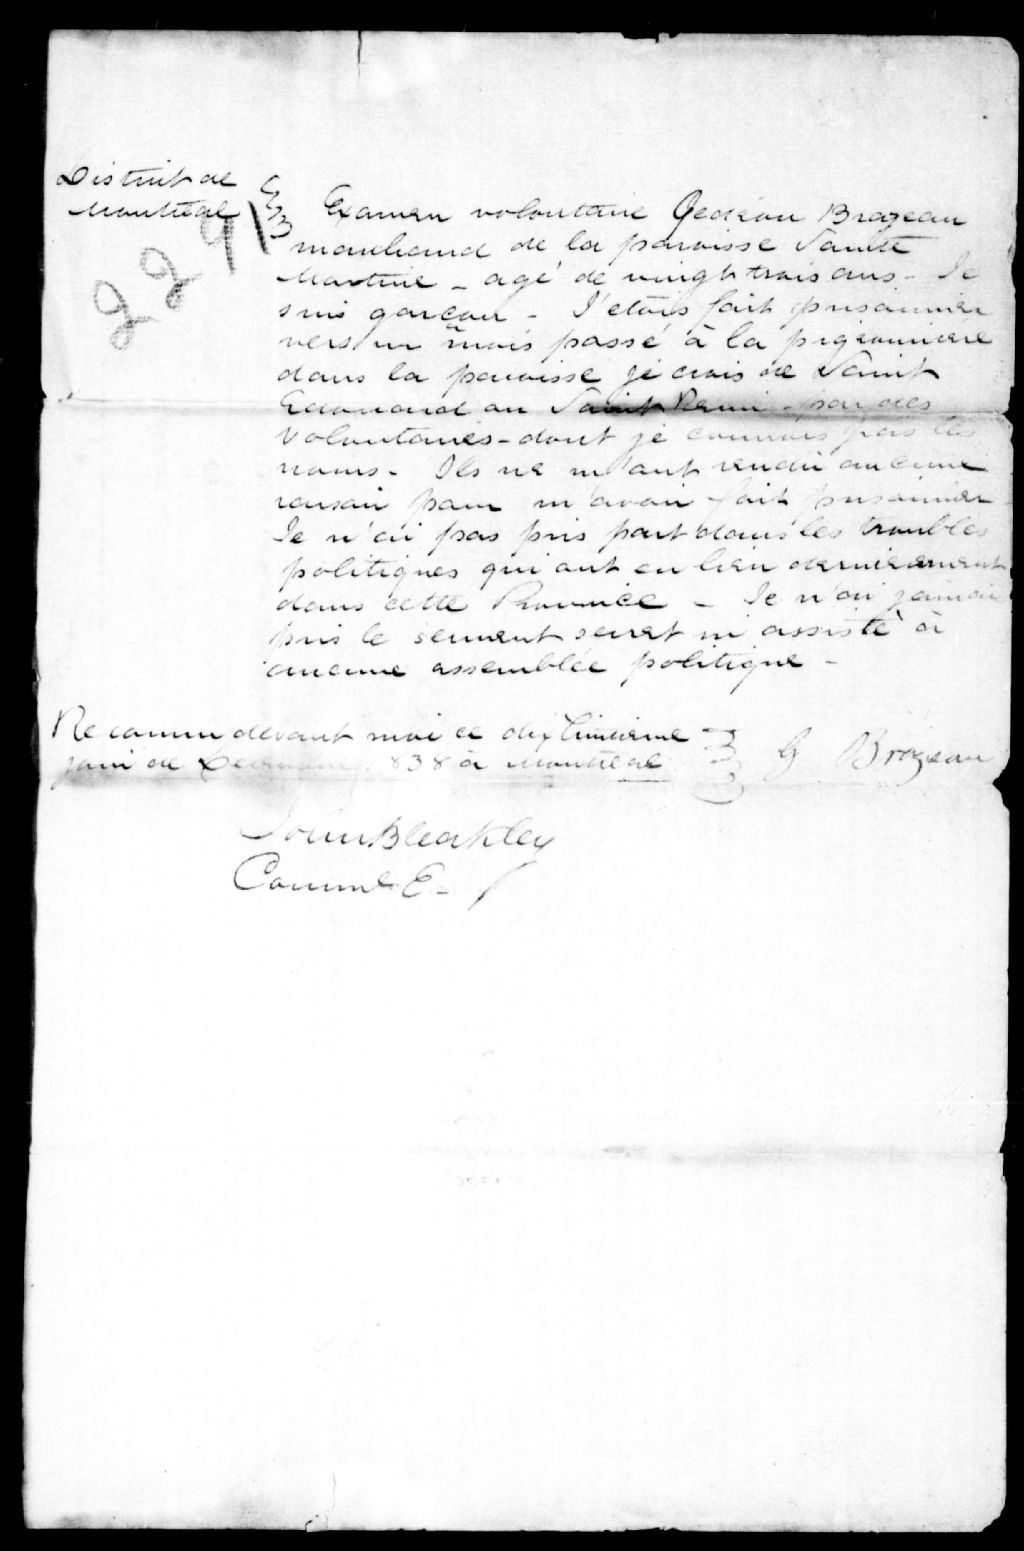 District de
Montréal
2291
Examen volontaire Gedéon Brazeau
marchand de la paroisse Sainte
Martine - agé de vingt trois ans - Je
suis garçon - J'etais fait prisonnier
vers un mois passé à la pigeonniere
dans la paroisse je crois de Saint
Edouard ou Saint Remi - par des
Volontaires - dont je connois pas les
noms - Ils ne m'ont rendu aucune
raison pour m'avoir fait prisonnier
Je n'ai pas pris part dans les troubles
politiques qui ont eu lieu dernierement
dans cette Province - Je n'ai jamais
pris le serment secret ni assisté à
aucune assemblée politique -
Reconnu devant moi ce dix
jour de 1838 à Montréal
G Brazeau
John Bleakley
Comme E -